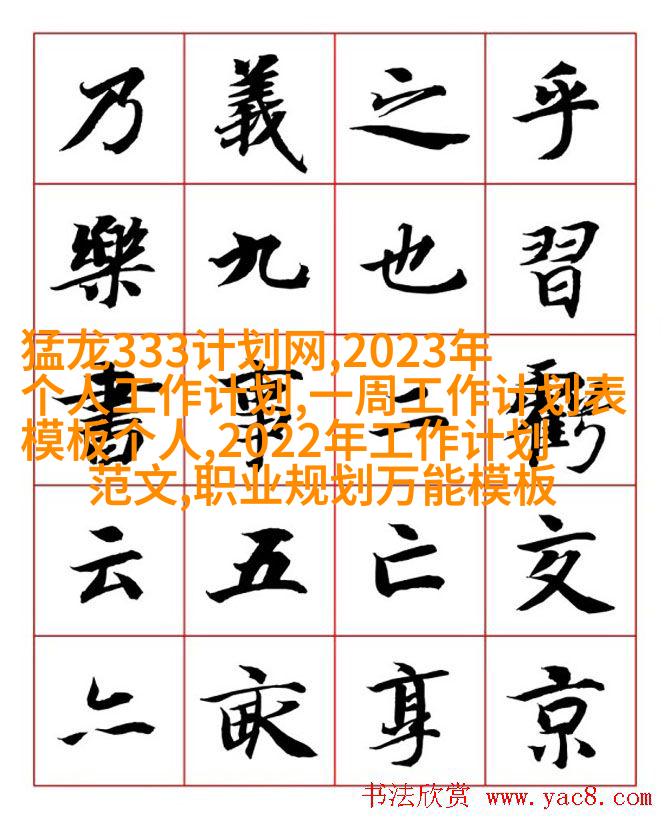 乃 義 之 乎
樂 九 也 習
猛龙333计划网,2023年
个人工作计划,一周工作计划表
模板个人,2022年工作计划
范文,职业规划万能模板
書 事 二 虧
云 五 亡 交
畝 享 京
书法欣赏 www.yac8.com